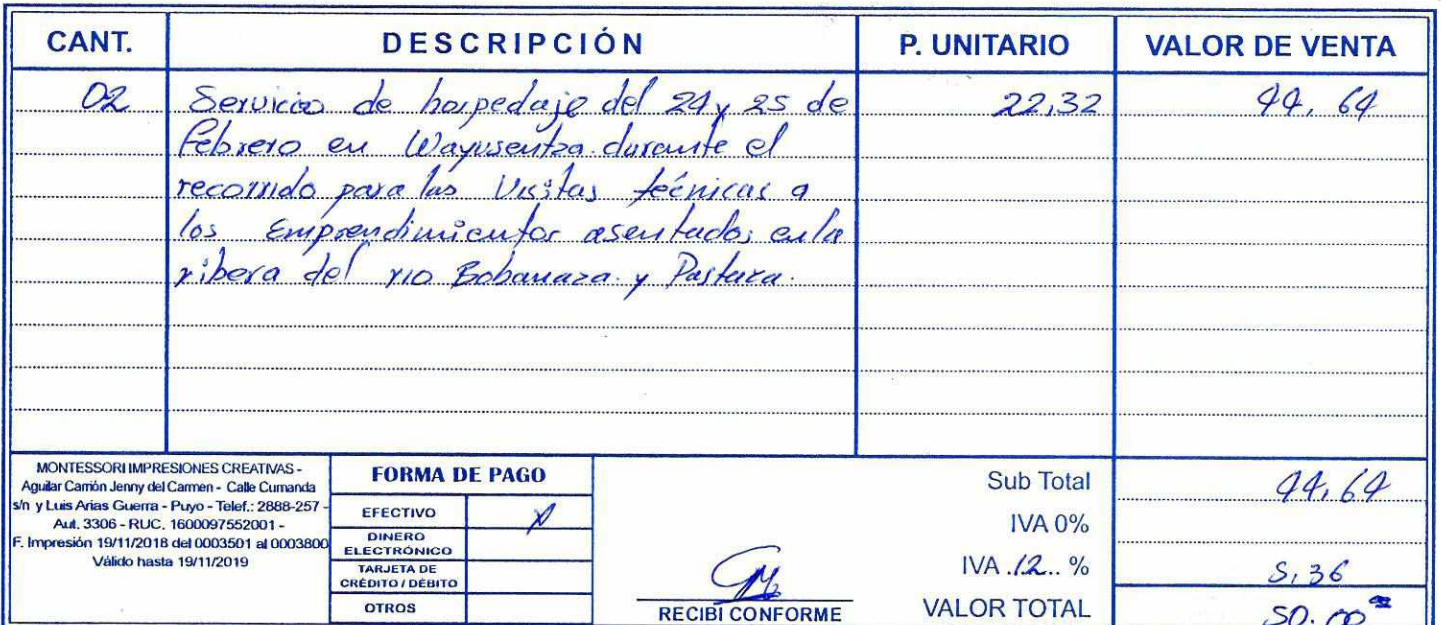 CANT. DESCRIPCIÓN P. UNITARIO VALOR DE VENTA
02 Servicio de hospedaje del 24 y 25 de 22,32 44,64
Febrero en Wayusentza durante el
recorrido para las Visitas técnicas a
los Emprendimientos asentados en la
ribera del rio Bobanaza y Pastaza.
MONTESSORI IMPRESIONES CREATIVAS -
Aguilar Carrión Jenny del Carmen - Calle Cumanda
s/n y Luis Arias Guerra - Puyo - Telef.: 2888-257 -
Aut. 3306 - RUC. 1600097552001 -
F. Impresión 19/11/2018 del 0003501 al 0003800
Válido hasta 19/11/2019
FORMA DE PAGO
EFECTIVO X
DINERO
ELECTRÓNICO
TARJETA DE
CRÉDITO / DÉBITO
OTROS
RECIBÍ CONFORME
Sub Total 44,64
IVA 0%
IVA .12.. % 5,36
VALOR TOTAL 50.00